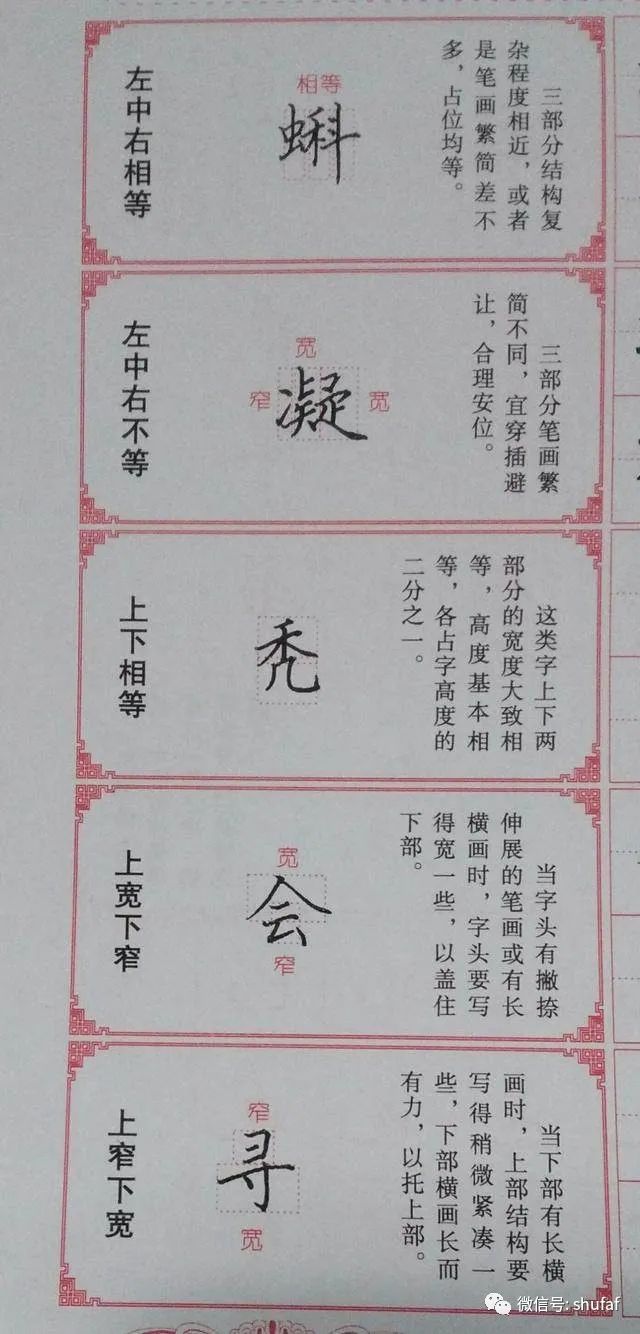 左中右相等
相等
蝌
三部分结构复
杂程度相近，或者
是笔画繁简差不
多，占位均等。
左中右不等
宽
窄
凝
宽
三部分笔画繁
简不同，宜穿插避
让，合理安位。
上下相等
秃
这类字上下两
部分的宽度大致相
等，高度基本相
等，各占字高度的
二分之一。
上宽下窄
宽
会
窄
当字头有撇捺
伸展的笔画或有长
横画时，字头要写
得宽一些，以盖住
下部。
上窄下宽
窄
寻
宽
当下部有长横
画时，上部结构要
写得稍微紧凑一
些，下部横画长而
有力，以托上部。
微信号: shufaf